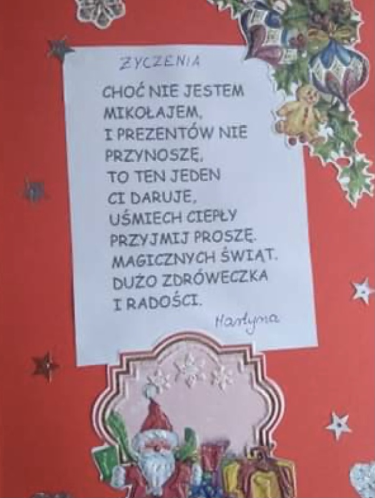 ŻYCZENIA
CHOĆ NIE JESTEM
MIKOŁAJEM,
I PREZENTÓW NIE
PRZYNOSZĘ,
TO TEN JEDEN
CI DARUJE,
UŚMIECH CIEPŁY
PRZYJMIJ PROSZĘ.
MAGICZNYCH ŚWIĄT.
DUŻO ZDRÓWECZKA
I RADOŚCI.
Martyna